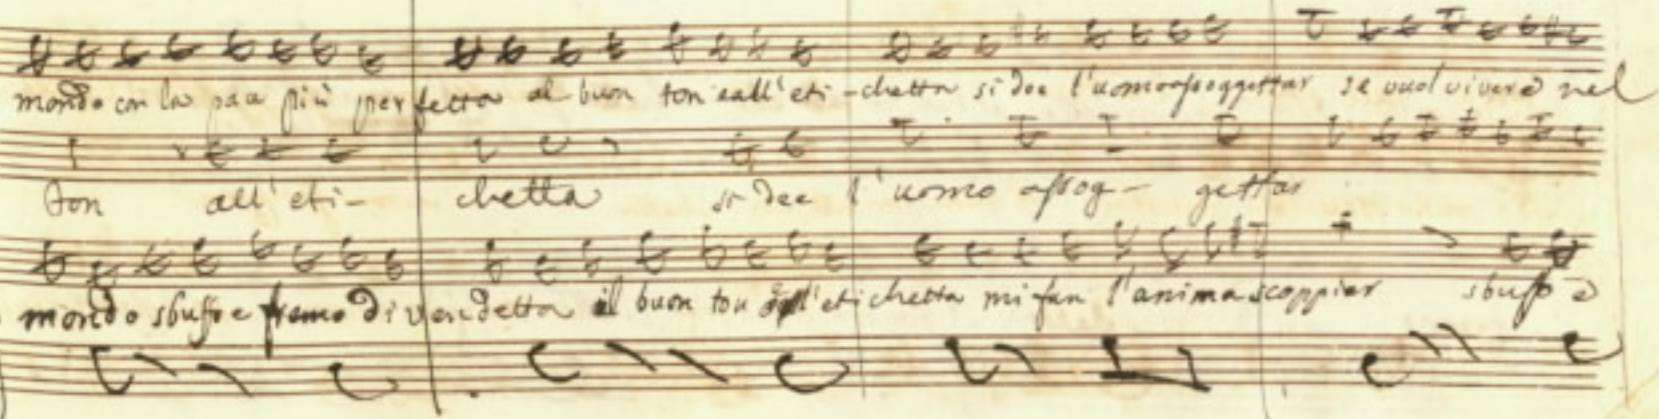 mondo con la pace più perfetta al buon ton e all'eti-chetta si dee l'uomo assoggettar se vuol vivere nel
ton all'eti-chetta si dee l'uomo assog-gettar
mondo sbuffo e fremo di vendetta il buon ton e l'etichetta mi fan l'anima scoppiar sbuffo e